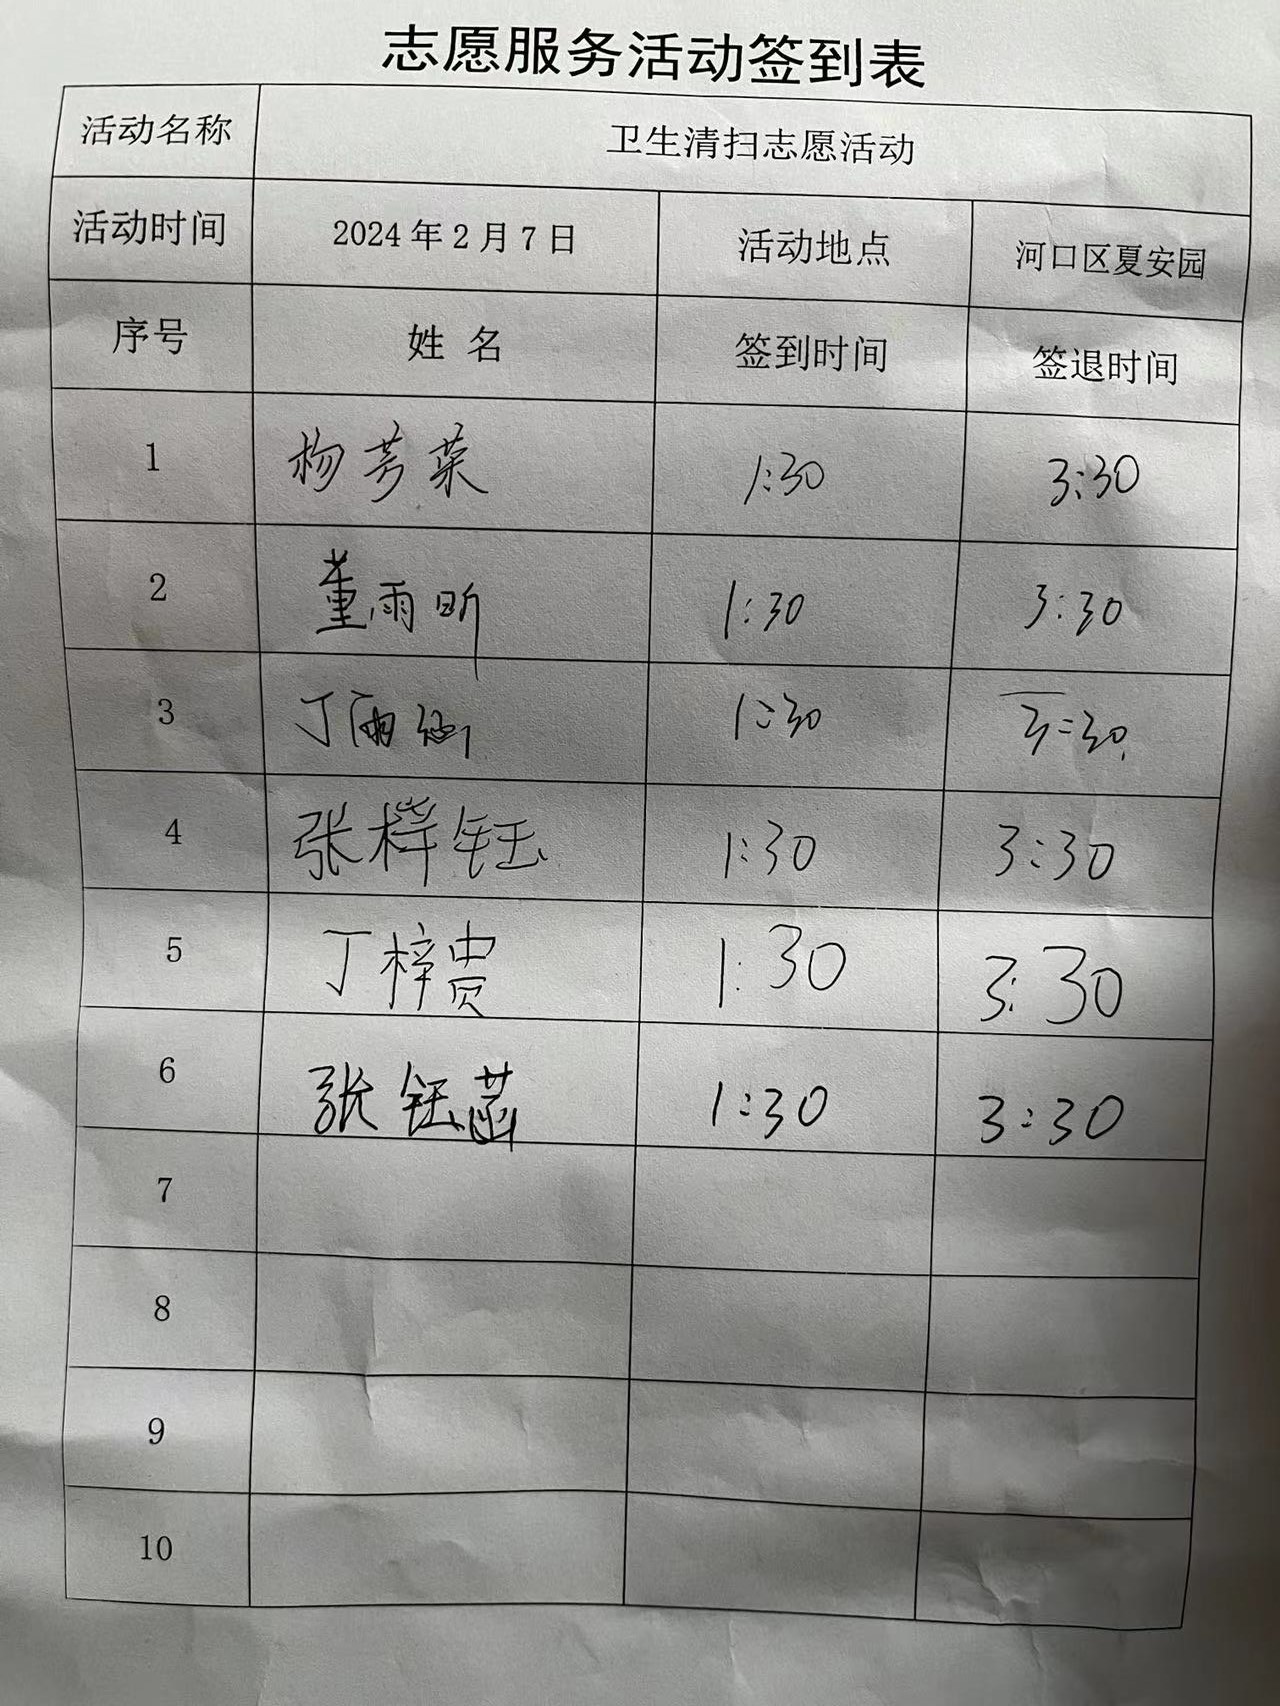 志愿服务活动签到表
活动名称 卫生清扫志愿活动
活动时间 2024年2月7日 活动地点 河口区夏安园
序号 姓名 签到时间 签退时间
1 杨芳菜 1:30 3:30
2 董雨昕 1:30 3:30
3 丁雨 1:30 3:30
4 张样钰 1:30 3:30
5 丁梓贵 1:30 3:30
6 张钰菡 1:30 3:30
7
8
9
10